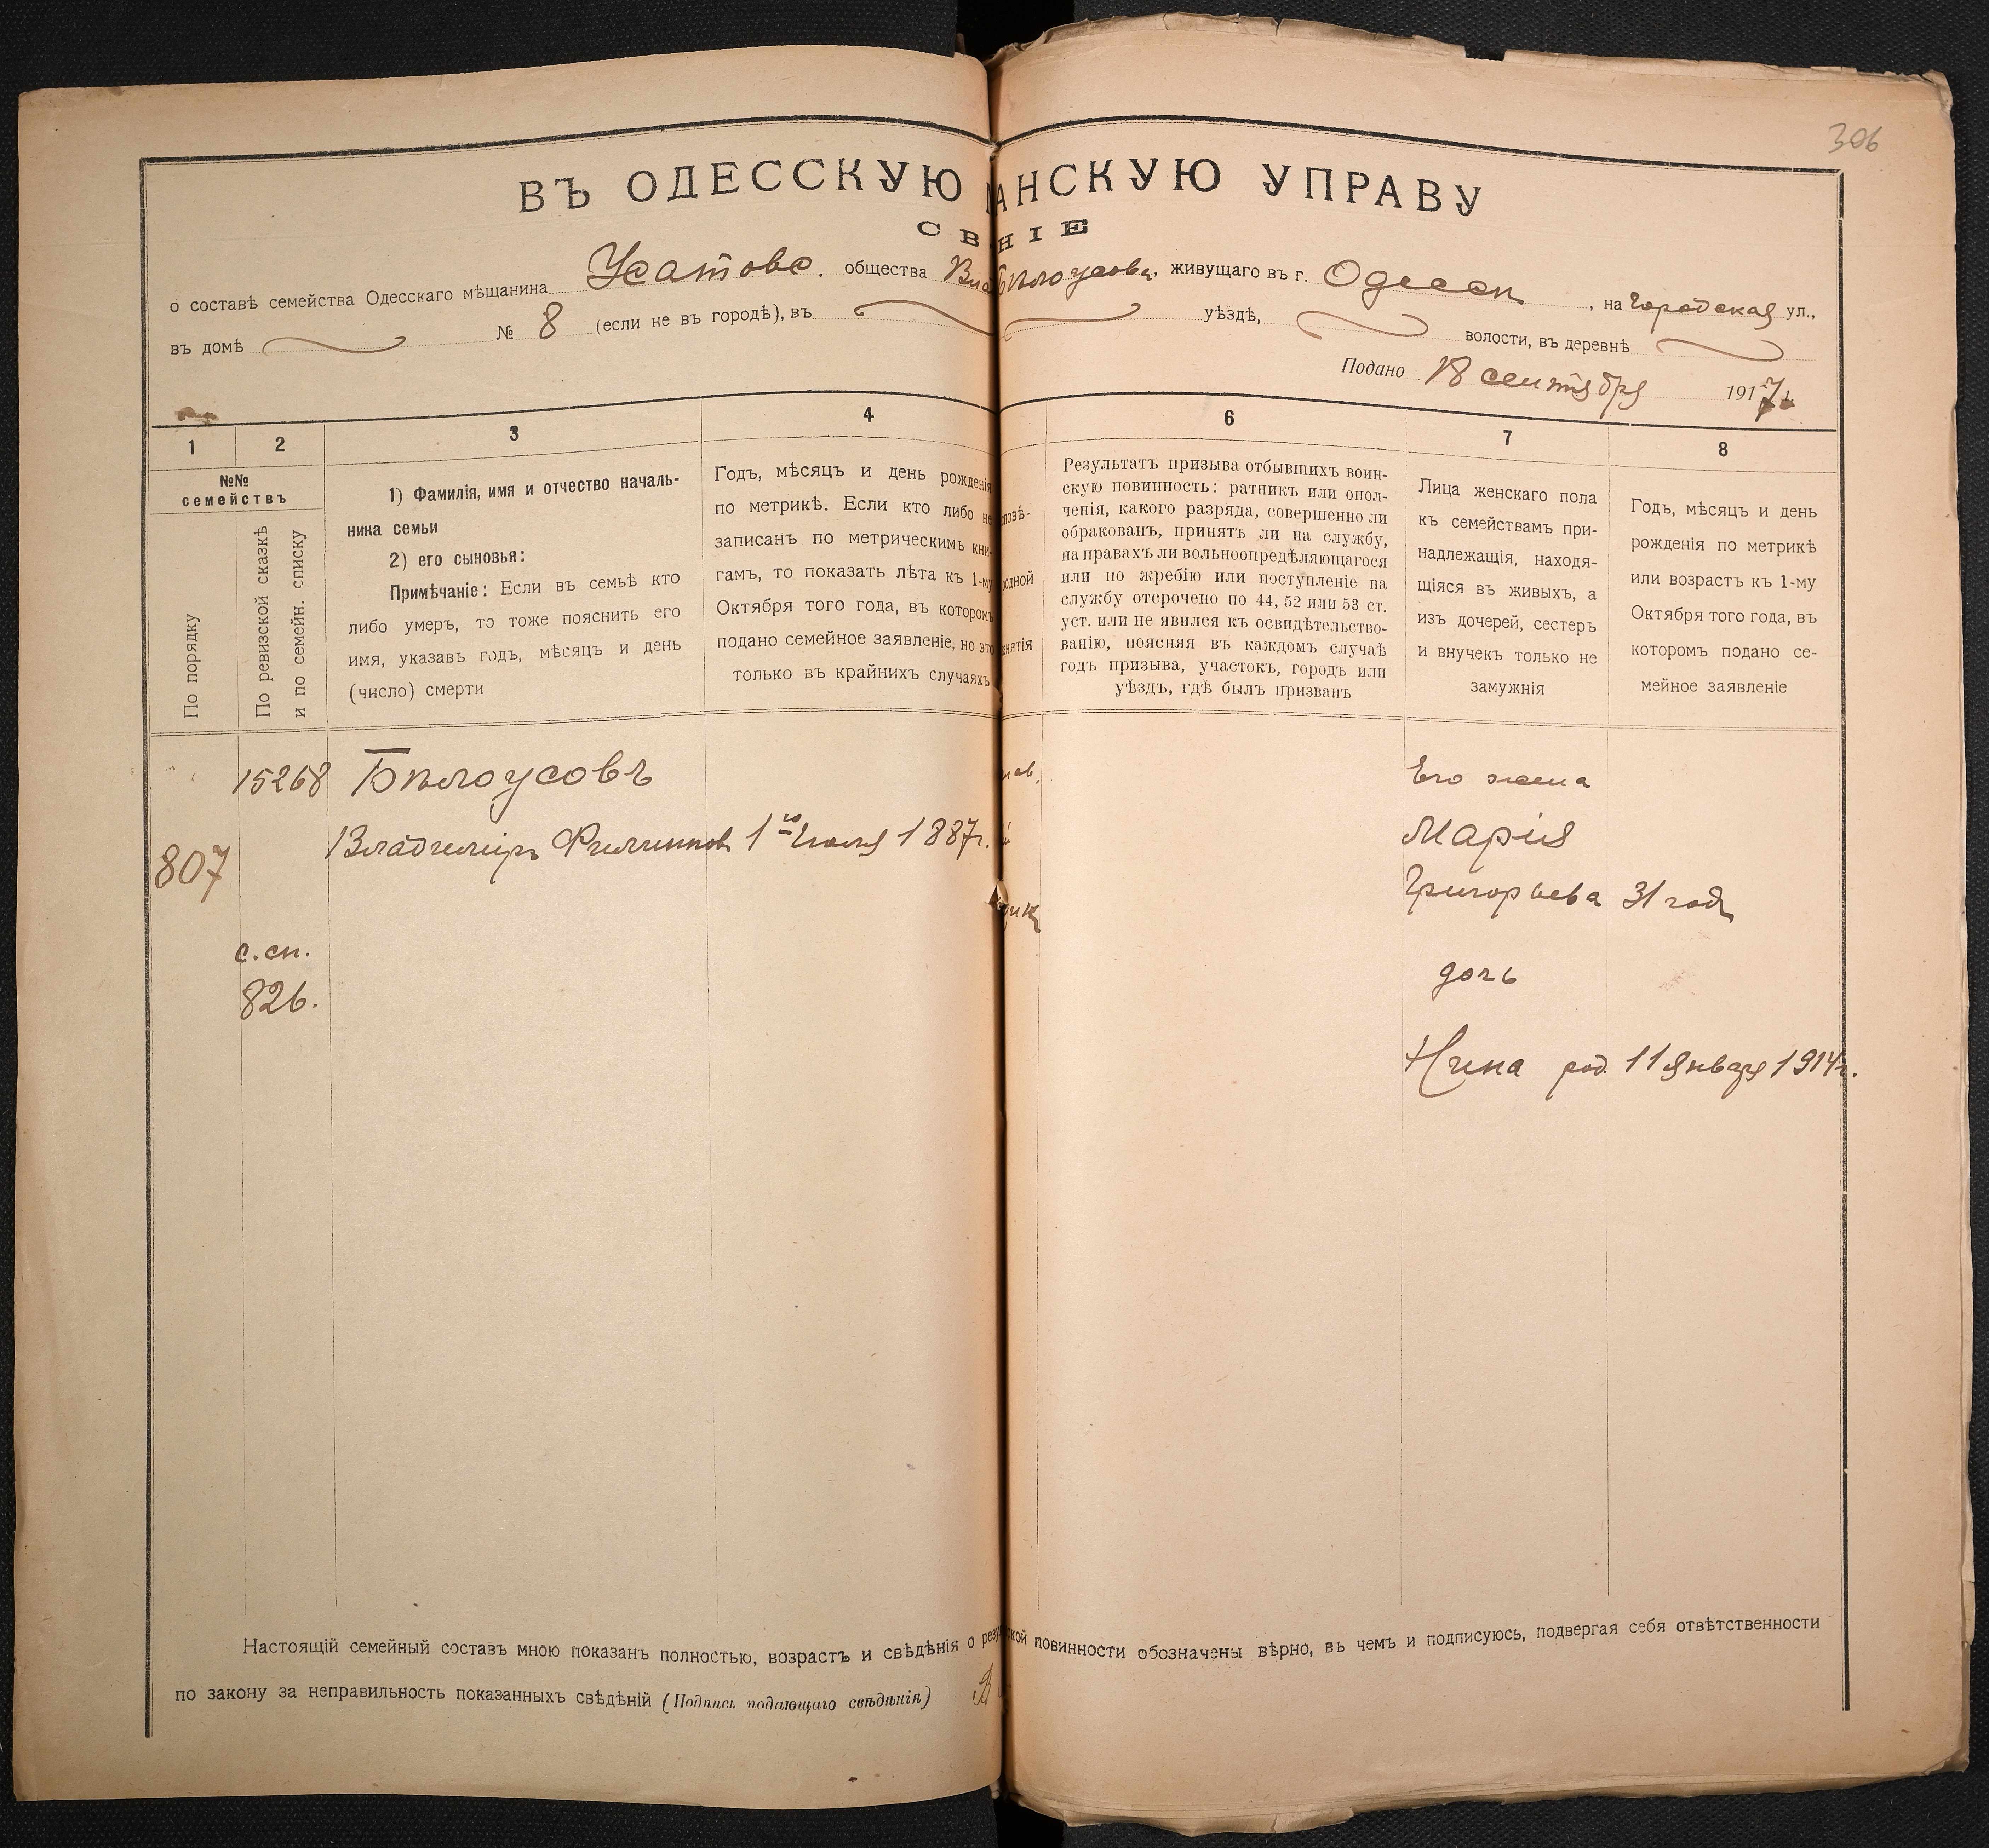 306
ВЪ ОДЕССКУЮ АНСКУЮ УПРАВУ
СВ НІЕ
о составѣ семейства Одесскаго мѣщанина Усатово. общества Вла Бѣлоусова, живущаго въ г. Одессѣ, на Городская ул.,
въ домѣ № 8 (если не въ городѣ), въ уѣздѣ, волости, въ деревнѣ
Подано 18 сентября 1917 г.
1 2 3 4 6 7 8
№№
семействъ
По порядку
По ревизской сказкѣ
и по семейн. списку
1) Фамилія, имя и отчество началь-
ника семьи
2) его сыновья:
Примѣчаніе: Если въ семьѣ кто
либо умеръ, то тоже пояснить его
имя, указавъ годъ, мѣсяцъ и день
(число) смерти
Годъ, мѣсяцъ и день рожденія
по метрикѣ. Если кто либо не
записанъ по метрическимъ кни-
гамъ, то показать лѣта къ 1-му
Октября того года, въ которомъ
подано семейное заявленіе, но это
только въ крайнихъ случаяхъ
повѣ-
родной
анятія
Результатъ призыва отбывшихъ воин-
скую повинность: ратникъ или опол-
ченія, какого разряда, совершенно ли
обракованъ, принятъ ли на службу,
на правахъ ли вольноопредѣляющагося
или по жребію или поступленіе на
службу отсрочено по 44, 52 или 53 ст.
уст. или не явился къ освидѣтельство-
ванію, поясняя въ каждомъ случаѣ
годъ призыва, участокъ, городъ или
уѣздъ, гдѣ былъ призванъ
Лица женскаго пола
къ семействамъ при-
надлежащія, находя-
щіяся въ живыхъ, а
изъ дочерей, сестеръ
и внучекъ только не
замужнія
Годъ, мѣсяцъ и день
рожденія по метрикѣ
или возрастъ къ 1-му
Октября того года, въ
которомъ подано се-
мейное заявленіе
15268 Бѣлоусовъ
807
Владиміръ Филиппов 1го Іюля 1887г.
с.сп.
826.
Его жена
Марія
Григорьева 31 годъ
дочь
Нина род. 11 Января 1914г.
Настоящій семейный составъ мною показанъ полностью, возрастъ и свѣдѣнія о резу ской повинности обозначены вѣрно, въ чемъ и подписуюсь, подвергая себя отвѣтственности
по закону за неправильность показанныхъ свѣдѣній (Подпись подающаго свѣдѣнія) В